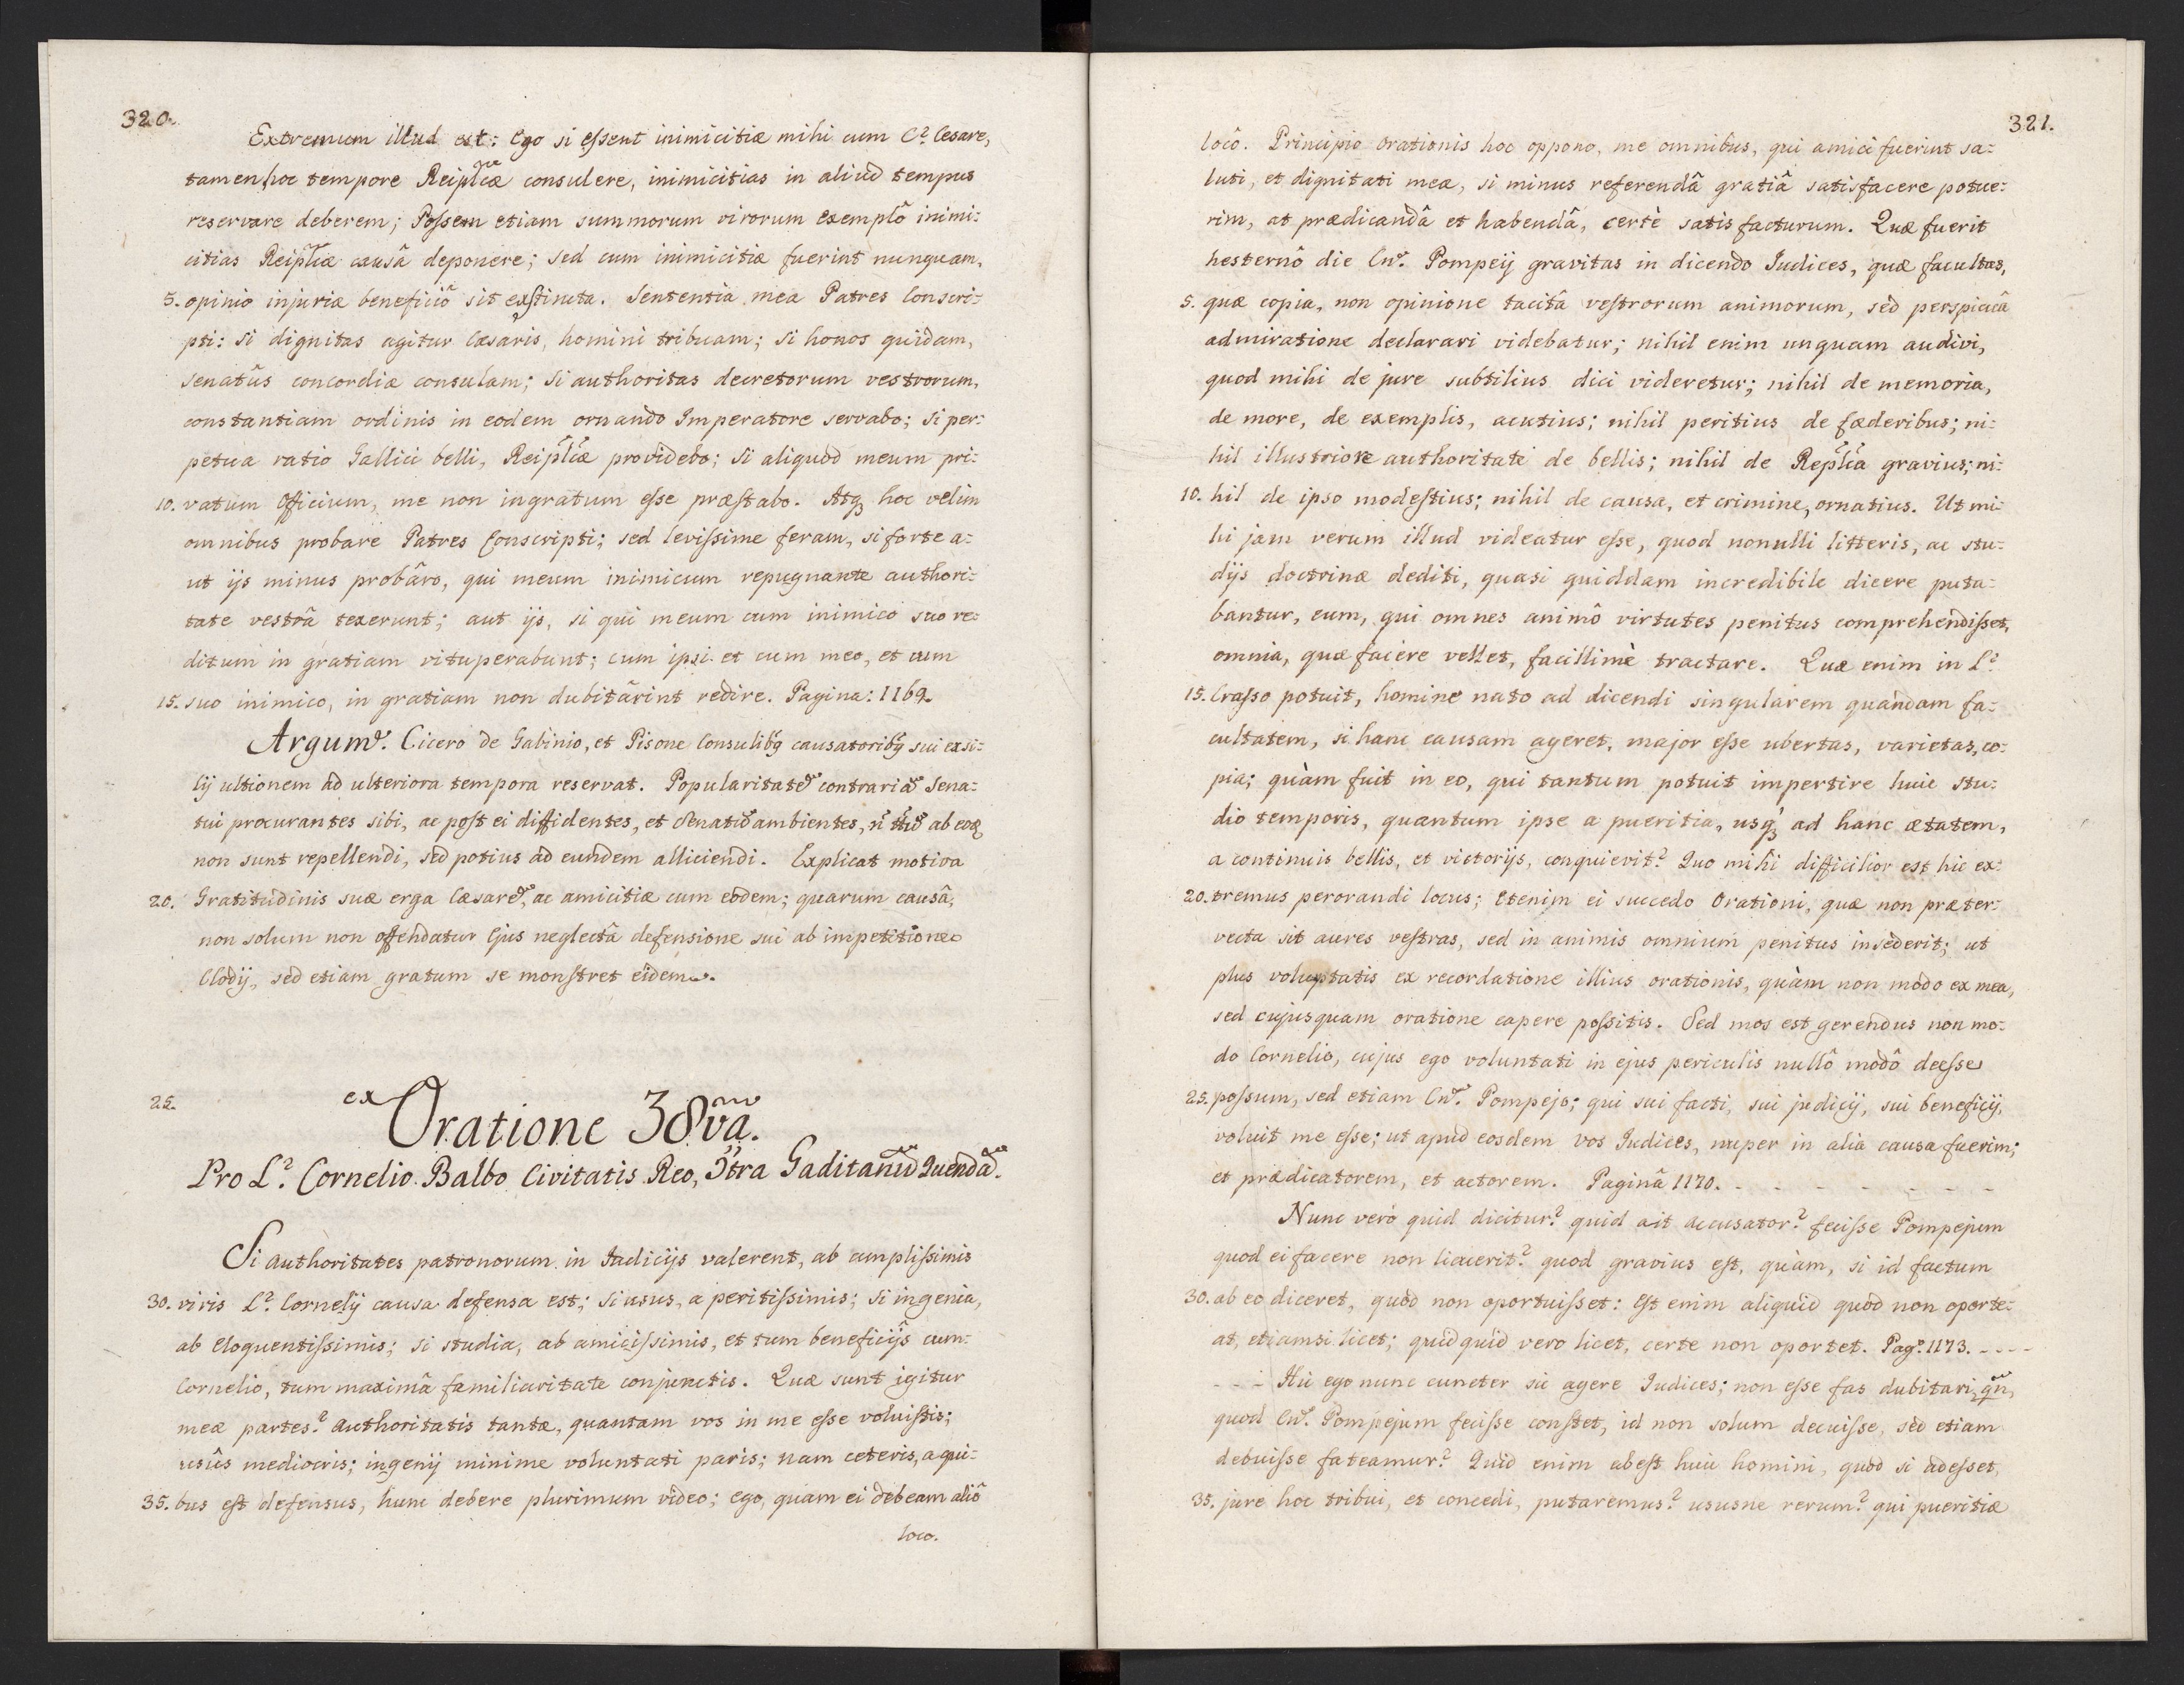 320.
Extremum illud est: Ego si essent inimicitiæ mihi cum C? Cesare,
tamen hoc tempore Reiplicæ consulere, inimicitias in aliud tempus
reservare deberem; Possem etiam summorum virorum exemplô inimi:
citias Reiplicæ causâ deponere; sed cum inimicitiæ fuerint nunquam,
5. opinio injuriæ beneficiô sit exstincta. Sententia mea Patres Conscri:
pti: si dignitas agitur Cæsaris, homini tribuam; Si honos quidam,
senatûs concordiæ consulam; Si authoritas decretorum vestrorum,
constantiam ordinis in eodem ornando Imperatore servabo; Si per:
petua ratio Gallici belli, Reiplicæ providebo; Si aliquod meum pri:
10. vatum officium, me non ingratum esse præstabo. Atq3 hoc velim
omnibus probare Patres Conscripti; sed levissime feram, si forte a:
ut ijs minus probâro, qui meum inimicum repugnante authori:
tate vestrâ texerunt; aut ijs, si qui meum cum inimico suo re:
ditum in gratiam vituperabunt; cum ipsi et cum meo, et cum
15. suo inimico, in gratiam non dubitârint redire. Pagina: 1169.
Argum. Cicero de Gabinio, et Pisone Consulibq causatoribq sui exsi:
lij ultionem ad ulteriora tempora reservat. Popularitate contraria Sena:
tui procurantes sibi, ac post ei diffidentes, et Senatu ambientes, ab
non sunt repellendi, sed potius ad eundem alliciendi. Explicat motiva
20. Gratitudinis suæ erga Cæsare, ac amicitiæ cum eodem; quarum causâ,
non solum non offendatur Ejus neglectâ defensione sui ab impetitione
Clodij, sed etiam gratum se monstret eidem.
25. ex Oratione 38va.
Pro L? Cornelio Balbo Civitatis Reo, Ɔtra Gaditanu Quenda.
Si authoritates patronorum in Judicijs valerent, ab amplissimis
30. viris L? Cornelij causa defensa est; si usus, a peritissimis; si ingenia,
ab Eloquentissimis; si studia, ab amicissimis, et tum beneficijs cum:
Cornelio, tum maximâ familiaritate conjunctis. Quæ sunt igitur
meæ partes? Authoritatis tantæ, quantam vos in me esse voluistis;
usûs mediocris; ingenij minime voluntati paris; nam ceteris, a qui:
35. bus est defensus, hunc debere plurimum video; ego, quam ei debeam aliô
loco.
321.
locô. Principio Orationis hoc oppono, me omnibus, qui amici fuerint sa:
luti, et dignitati meæ, si minus referendâ gratiâ satisfacere potue:
rim, at prædicandâ et habendâ, certè satis facturum. Quæ fuerit
hesternô die Cn. Pompeij gravitas in dicendo Iudices, quæ facultas,
5. quæ copia, non opinione tacitâ vestrorum animorum, sed perspicuâ
admiratione declarari videbatur; nihil enim unquam audivi,
quod mihi de jure subtilius dici videretur; nihil de memoria,
de more, de exemplis, acutius; nihil peritius de fœderibus; ni:
hil illustriore authoritate de bellis; nihil de Replica gravius; ni:
10. hil de ipso modestius; nihil de causa, et crimine, ornatius. Ut mi:
hi jam verum illud videatur esse, quod nonulli litteris, ac stu:
dijs doctrinæ dediti, quasi quiddam incredibile dicere puta:
bantur, eum, qui omnes animô virtutes penitus comprehendisset,
omnia, quæ facere vellet, facillimè tractare. Quæ enim in L?
15. Crasso potuit, homine nato ad dicendi singularem quandam fa:
cultatem, si hanc causam ageret, major esse ubertas, varietas, co:
pia; quàm fuit in eo, qui tantum potuit impertire huic stu:
dio temporis, quantum ipse a pueritia, usq3 ad hanc ætatem,
a continuis bellis, et victorijs, conquievit? Quo mihi difficilior est hic ex:
20. tremus perorandi locus; Etenim ei succedo Orationi, quæ non præter:
vecta sit aures vestras, sed in animis omnium penitus insederit; ut
plus voluptatis ex recordatione illius orationis, quàm non modo ex mea,
sed cujusquam oratione capere possitis. Sed mos est gerendus non mo:
do Cornelio, cujus ego voluntati in ejus periculis nullô modô deesse
25. possum, sed etiam Cn. Pompejo; qui sui facti, sui judicij, sui beneficij,
voluit me esse; ut apud eosdem vos Iudices, nuper in alia causa fuerim;
et prædicatorem, et actorem. Paginâ 1170. - - - - - - -
Nunc verò quid dicitur? quid ait accusator? fecisse Pompejum
quod ei facere non licuerit? quod gravius est, quàm, si id factum
30. ab eo diceret, quod non oportuisset: Est enim aliquid quod non oporte:
at, etiamsi licet; quidquid vero licet, certe non oportet. Pag. 1173. - - - -
- - - Hic ego nunc cuncter sic agere Iudices; non esse fas dubitari, qn,
quod Cn. Pompejum fecisse constet, id non solum decuisse, sed etiam
debuisse fateamur? Quid enim abest huic homini, quod si adesset,
35. jure hoc tribui, et concedi, putaremus? ususne rerum? qui pueritiæ